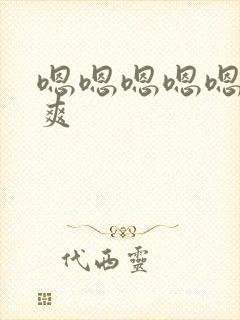 嗯嗯嗯嗯嗯
爽
代西靈